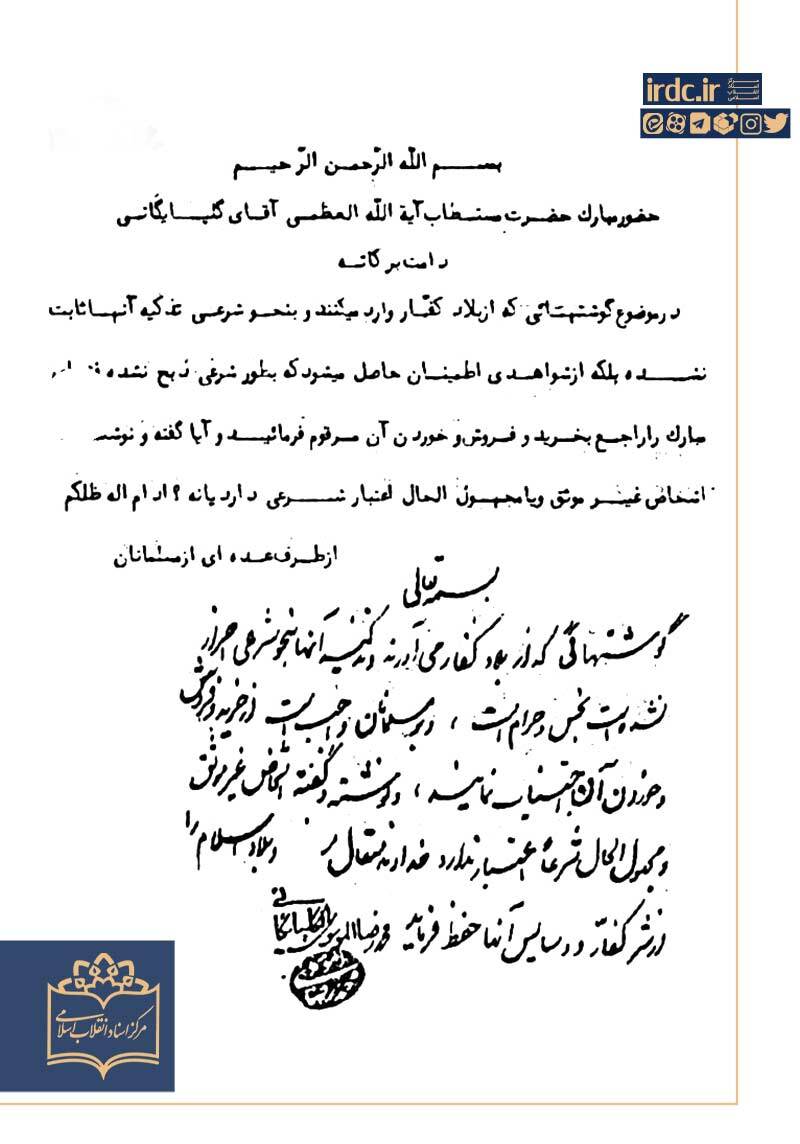 irdc.ir
مرکز اسناد انقلاب اسلامی
بسم الله الرّحمن الرّحیم
حضور مبارك حضرت مستطاب آیة الله العظمی آقای گلپایگانی
دامت برکاته
در موضوع گوشتهائی که از بلاد کفّار وارد میکنند و بنحو شرعی تذکیه آنها ثابت
نشده بلکه از شواهدی اطمینان حاصل میشود که بطور شرعی ذبح نشده
مبارك را راجع بخرید و فروش و خوردن آن مرقوم فرمائید و آیا گفته و نوشته
اشخاص غیر موثق و یا مجهول الحال اعتبار شرعی دارد یا نه ؟ ادام اله ظلکم
از طرف عده ای از مسلمانان
بسمه تعالی
گوشتهائی که از بلاد کفار می آورند و تذکیه آنها بنحو شرعی احراز
نشده است نجس و حرام است ، و بر مسلمانان واجب است از خرید و فروش
و خوردن آن اجتناب نمایند ، و نوشته و گفته اشخاص غیر موثق
و مجهول الحال شرعاً اعتبار ندارد خداوند متعال و بلاد اسلام را
از شر کفّار و دسایس آنها حفظ فرماید محمد رضا الموسوی الگلپایگانی
مرکز اسناد انقلاب اسلامی